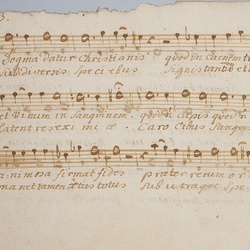 Dogma datur Christianis quod in Carnem t
Sub diversis Speciebus Signis tantum e
et Vinum in Sanguinem. quod n Capis quod n
latent res exi mi æ. Caro Cibus Sanguis
a: ni mosa firmat fides præter rerum or
ma net tamen totus sub utraque Spe